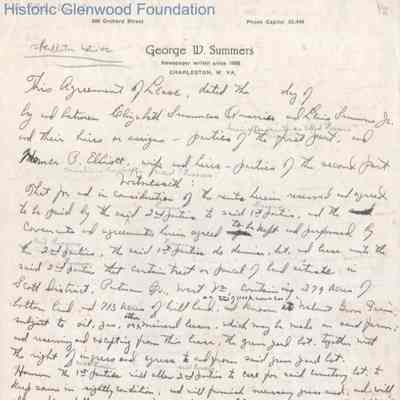 Historic Glenwood Foundation
Orchard Street
Phone Capitol
George W. Summers
Newspaper writer since 1888
CHARLESTON, W. VA.
This Agreement of Lease, dated the day of
by and between Elizabeth Summers Quarrier and Lewis Summers Jr.
and their heirs or assigns - parties of the first part, and
Homer B. Elliott, wife and heirs - parties of the second part
Witnesseth:
That for and in consideration of the rents herein reserved and agreed
to be paid by the said 2nd parties to said 1st parties, and the
Covenants and agreements herein agreed to be kept and performed by
the 2nd parties, the said 1st parties do demise, let, and lease unto the
said 2nd parties that certain tract or parcel of land situate in
Scott District, Putnam Co., West Va., containing 279 acres of
bottom land and 713 acres of hill land, and known as Walnut Grove Farm,
subject to oil, gas, other mineral leases, which may be made on said farm;
and reserving and excepting from this lease, the grave yard lot, together with
the right of ingress and egress to and from said grave yard lot.
However the 1st parties will allow 2nd parties to care for said cemetery lot, to
keep same in sightly condition, and will furnish necessary grass seed, and will